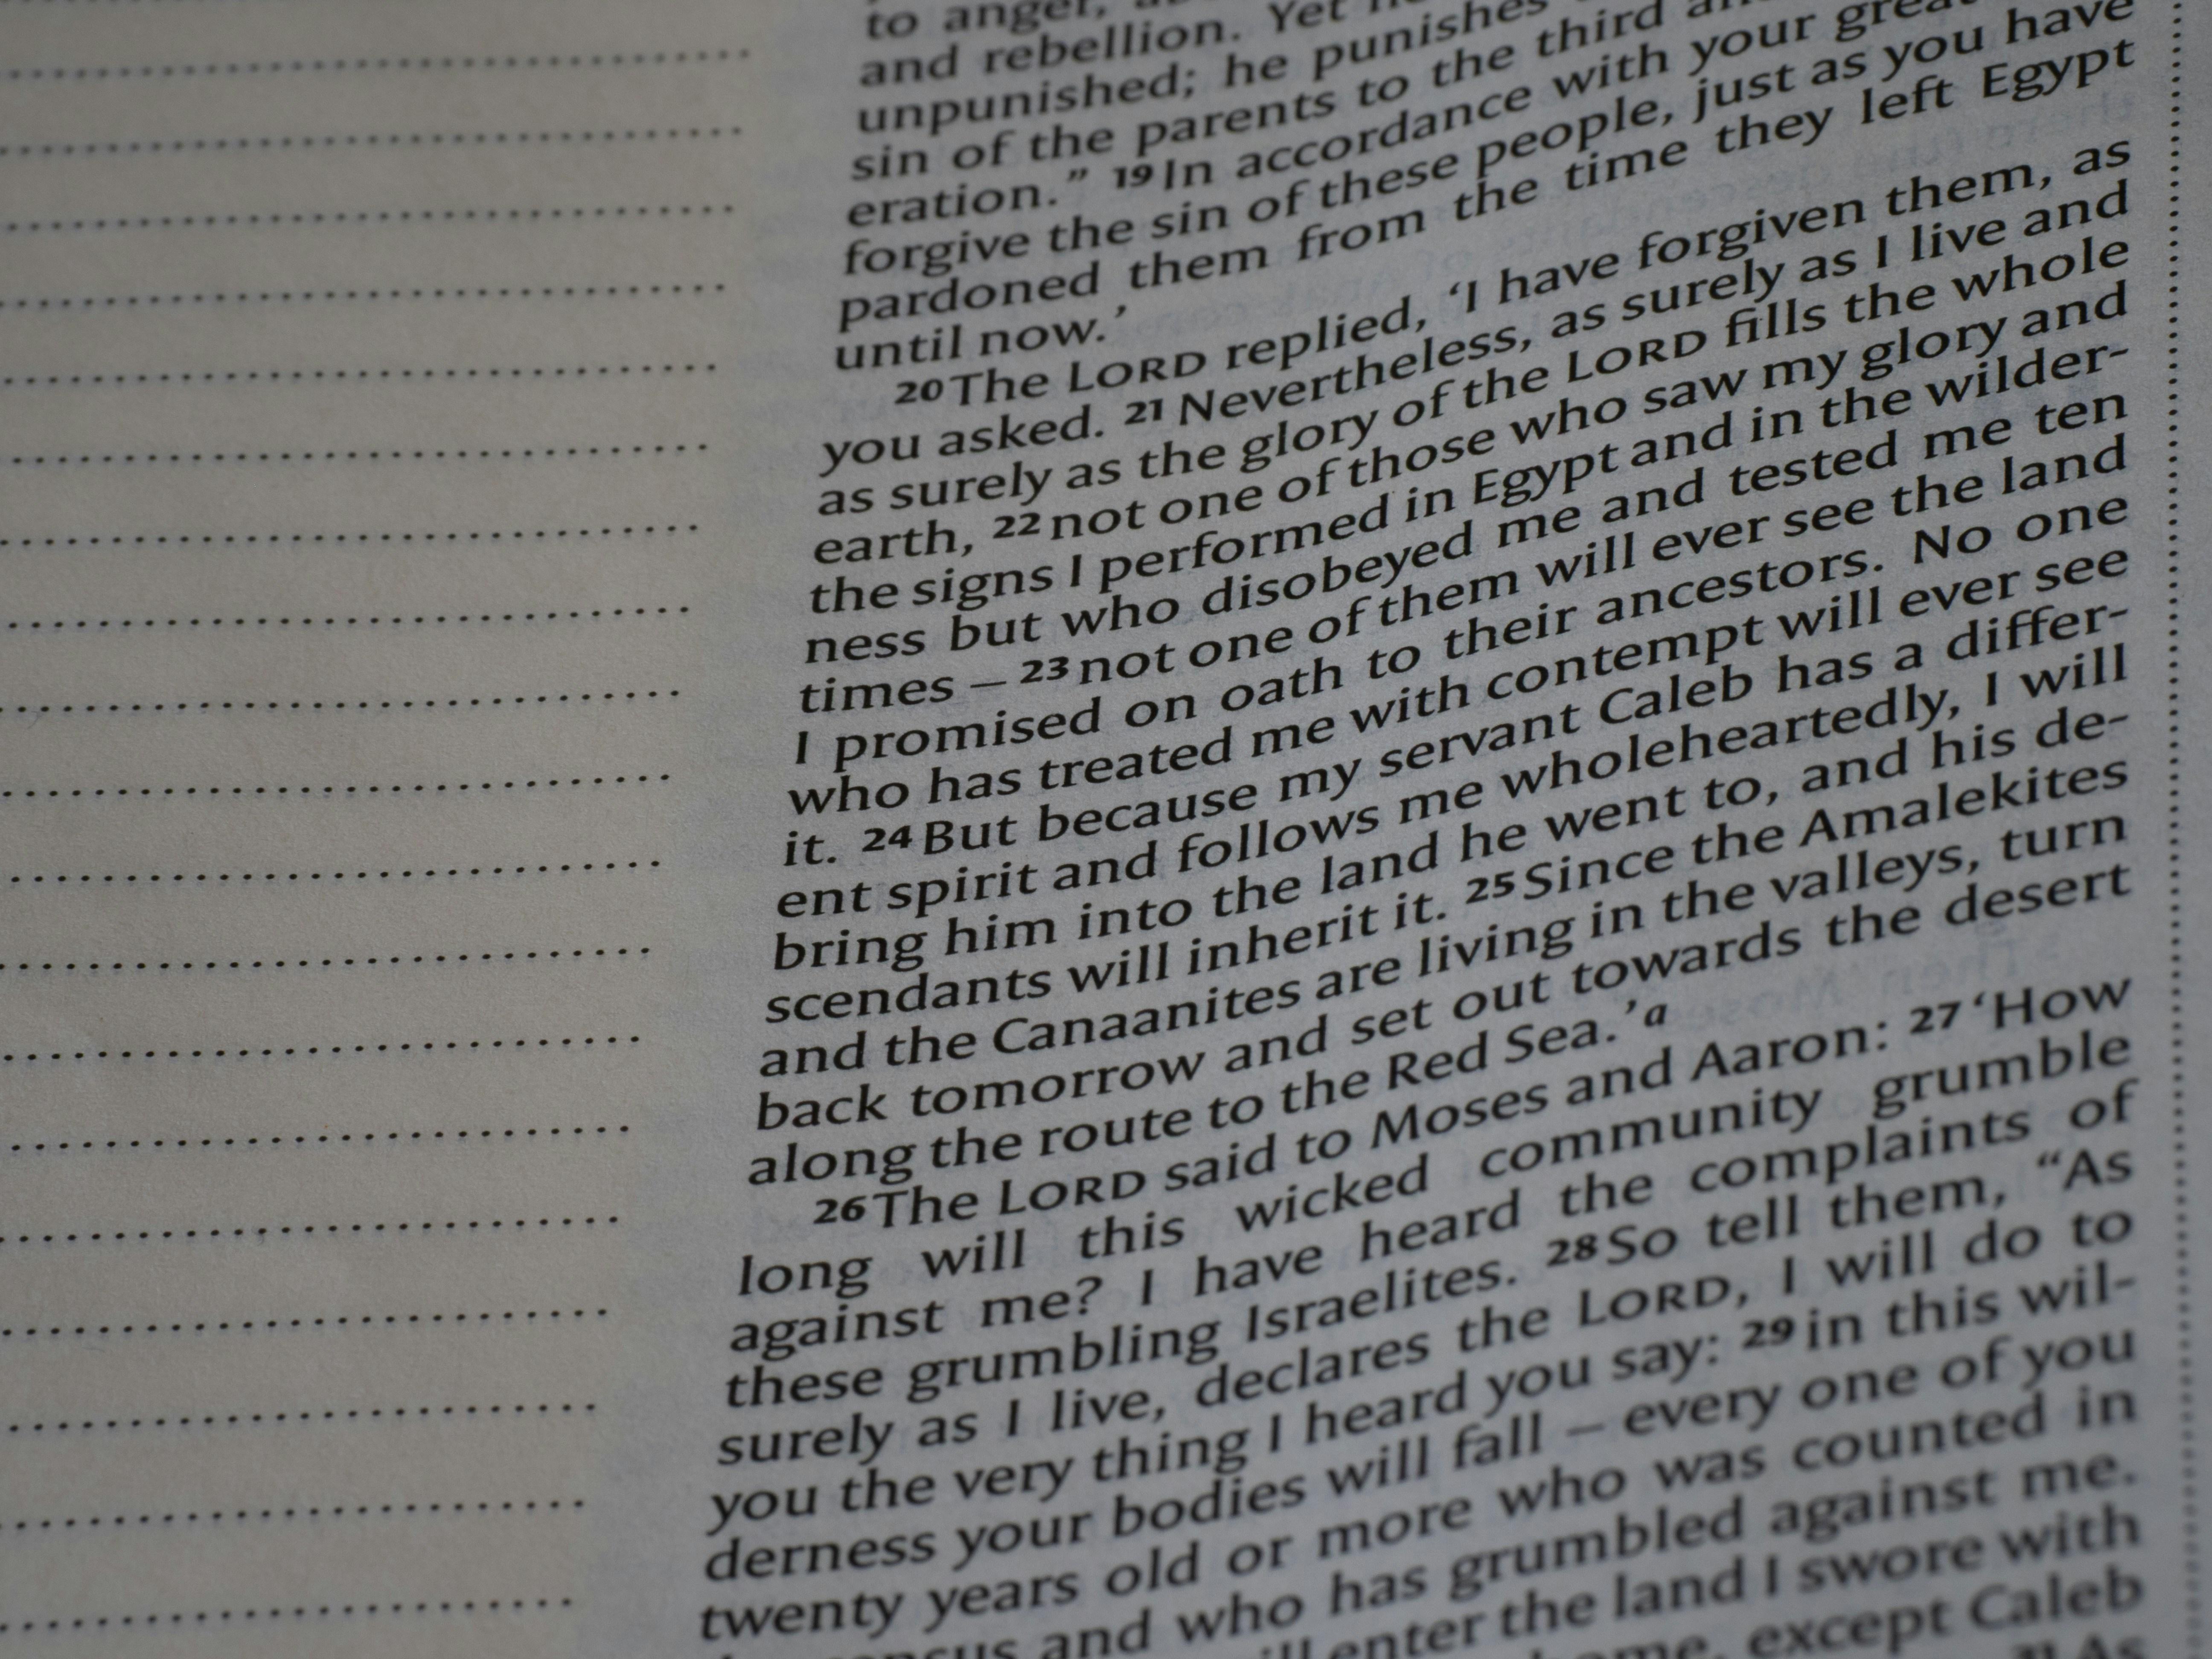 to anger,
and rebellion. Yet
unpunished; he punishes
sin of the parents to the third
eration.” 19 In accordance with your great
forgive the sin of these people, just as you have
pardoned them from the time they left Egypt
until now.’
20 The LORD replied, ‘I have forgiven them, as
you asked. 21 Nevertheless, as surely as I live and
as surely as the glory of the LORD fills the whole
earth, 22 not one of those who saw my glory and
the signs I performed in Egypt and in the wilder-
ness but who disobeyed me and tested me ten
times – 23 not one of them will ever see the land
I promised on oath to their ancestors. No one
who has treated me with contempt will ever see
it. 24 But because my servant Caleb has a differ-
ent spirit and follows me wholeheartedly, I will
bring him into the land he went to, and his de-
scendants will inherit it. 25 Since the Amalekites
and the Canaanites are living in the valleys, turn
back tomorrow and set out towards the desert
along the route to the Red Sea.’a
26 The LORD said to Moses and Aaron: 27 ‘How
long will this wicked community grumble
against me? I have heard the complaints of
these grumbling Israelites. 28 So tell them, “As
surely as I live, declares the LORD, I will do to
you the very thing I heard you say: 29 in this wil-
derness your bodies will fall – every one of you
twenty years old or more who was counted in
and who has grumbled against me.
enter the land I swore with
except Caleb
31 As